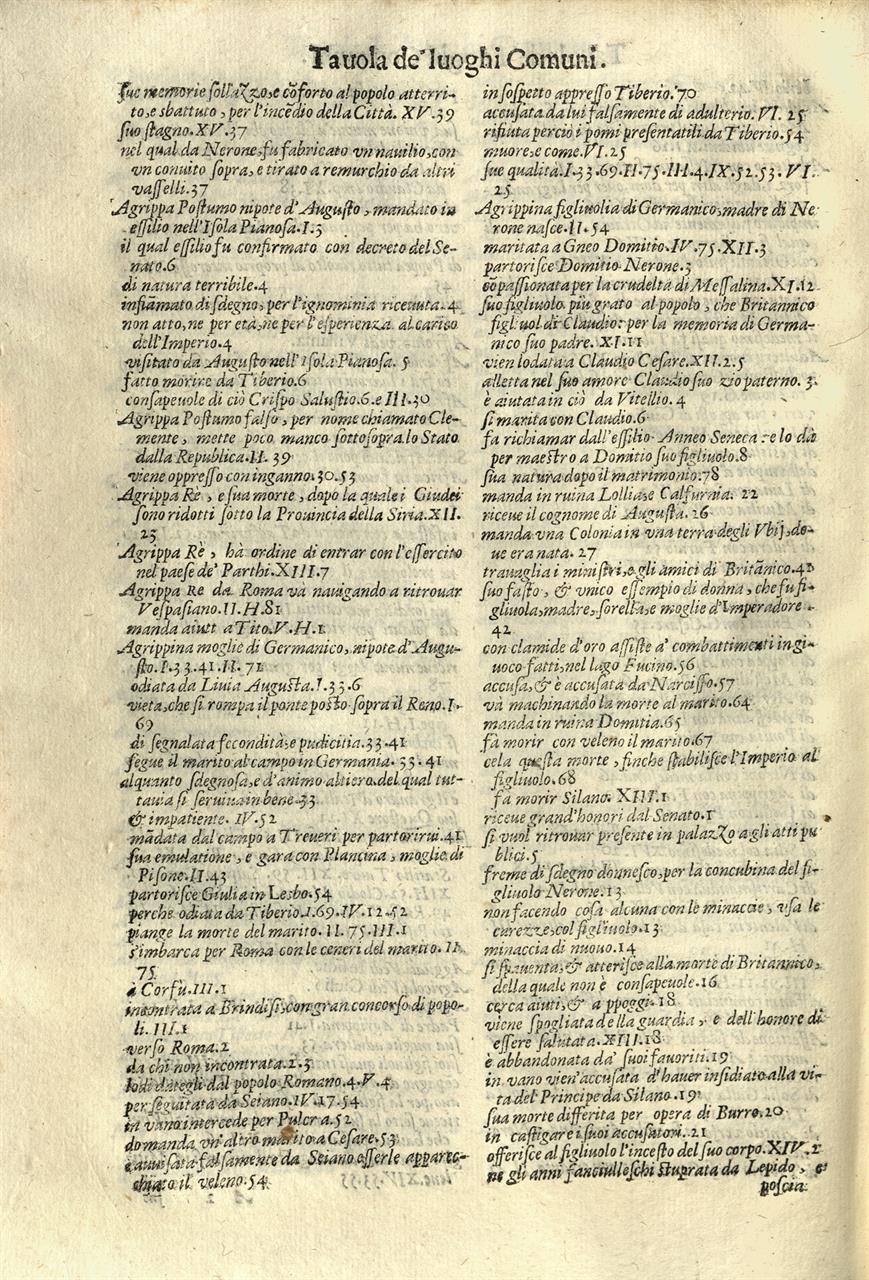 Tavola de' luoghi Comuni.
sue memorie sollazzo, e cõforto al popolo atterri-
to, e sbattuto, per l'incẽdio della Città. XV. 39
suo stagno. XV. 37
nel qual da Nerone, fu fabricato vn nauilio, con
vn conuito sopra, e tirato a remurchio da altri
vasselli. 37
Agrippa Postumo nipote d'Augusto, mandato in
essilio nell'Isola Pianosa. I. 3
il qual essilio fu confirmato con decreto del Se-
nato. 6
di natura terribile. 4
infiãmato di sdegno, per l'ignominia riceuuta. 4
non atto, ne per età, ne per l'esperienza al carico
dell'Imperio. 4
visitato da Augusto nell'Isola Pianosa. 5
fatto morire da Tiberio. 6
consapeuole di ciò Crispo Salustio. 6. e III. 30
Agrippa Postumo falso, per nome chiamato Cle-
mente, mette poco manco sottosopra lo Stato
dalla Republica. II. 39
viene oppresso con inganno. 30. 53
Agrippa Re, e sua morte, dopo la quale i Giudei
sono ridotti sotto la Prouincia della Siria. XII.
23
Agrippa Rè, hà ordine di entrar con l'essercito
nel paese de' Parthi. XIII. 7
Agrippa Re da Roma và nauigando a ritrouar
Vespasiano. II. H. 81
manda aiuti a Tito. V. H. 1
Agrippina moglie di Germanico, nipote d'Augu-
sto. I. 33. 41. II. 71
odiata da Liuia Augusta. I. 33. 6
vieta, che si rompa il ponte posto sopra il Reno. I.
69
di segnalata fecondità, e pudicitia. 33. 41
segue il marito al campo in Germania. 33. 41
alquanto sdegnosa, e d'animo altiero. del qual tut-
tauia si seruiua in bene. 33
& impatiente. IV. 52
mãdata dal campo a Treueri per partorirui. 41
sua emulatione, e gara con Plancina, moglie di
Pisone. II. 43
partorisce Giulia in Lesbo. 54
perche odiata da Tiberio. I. 69. IV. 12. 52
piange la morte del marito. II. 75. III. 1
s'imbarca per Roma con le ceneri del marito. II
75.
à Corfù. III. 1
incontrata a Brindisi, con gran concorso di popo-
li. III. 1
verso Roma. 2
da chi non incontrata. 2. 3
lodi dategli dal popolo Romano. 4. V. 4
perseguitata da Seiano. IV. 17. 54
in vano intercede per Pulcra. 52
domanda vn'altro marito a Cesare. 53
è auuisata falsamente da Seiano esserle apparec-
chiato il veleno. 54
in sospetto appresso Tiberio. 70
accusata da lui falsamente di adulterio. VI. 25
rifiuta perciò i pomi presentatili da Tiberio. 54
muore, e come. VI. 25
sue qualità. I. 33. 69. II. 75. III. 4. IX. 52. 53. VI.
25
Agrippina figliuolia di Germanico, madre di Ne
rone nasce. II. 54
maritata a Gneo Domitio. IV. 75. XII. 3
partorisce Domitio Nerone. 3
cõpassionata per la crudeltà di Messalina. XI. 12
suo figliuolo, più grato al popolo, che Britannico
figliuol di Claudio: per la memoria di Germa-
nico suo padre. XI. 11
vien lodata a Claudio Cesare. XII. 2. 5
alletta nel suo amore Claudio suo zio paterno. 3.
è aiutata in ciò da Vitellio. 4
si marita con Claudio. 6
fa richiamar dall'essilio Anneo Seneca: e lo dà
per maestro a Domitio suo figliuolo. 8
sua natura dopo il matrimonio. 78
manda in ruina Lollia, e Calfurnia. 22
riceue il cognome di Augusta. 26
manda vna Colonia in vna terra degli Vbij, do-
ue era nata. 27
trauaglia i ministri, e gli amici di Britãnico. 41
suo fasto, & vnico essempio di donna, che fu fi-
gliuola, madre, sorella, e moglie d'Imperadore.
42
con clamide d'oro assiste a' combattimenti in gi-
uoco fatti, nel lago Fucino. 56
accusa, & è accusata da Narcisso. 57
và machinando la morte al marito. 64
manda in ruina Domitia. 65
fà morir con veleno il marito. 67
cela questa morte, finche stabilisce l'Imperio al
figliuolo. 68
fa morir Silano. XIII. 1
riceue grand'honori dal Senato. 1
si vuol ritrouar presente in palazzo a gli atti pu
blici. 5
freme di sdegno donnesco, per la concubina del fi-
gliuolo Nerone. 13
non facendo cosa alcuna con le minaccie, vsa le
carezze, col figliuolo. 13
minaccia di nuouo. 14
si spauenta, & atterisce alla morte di Britannico,
della quale non è consapeuole. 16
cerca aiuti, & appoggi. 18
viene spogliata della guardia, e dell'honore di
essere salutata. XIII. 18
è abbandonata da' suoi fauoriti. 19
in vano vien'accusata d'hauer insidiato alla vi-
ta del Principe da Silano. 19
sua morte differita per opera di Burro. 20
in castigare i suoi accusatori. 21
offerisce al figliuolo l'incesto del suo corpo. XIV. 2
ne gli anni fanciulleschi stuprata da Lepido, e
poscia